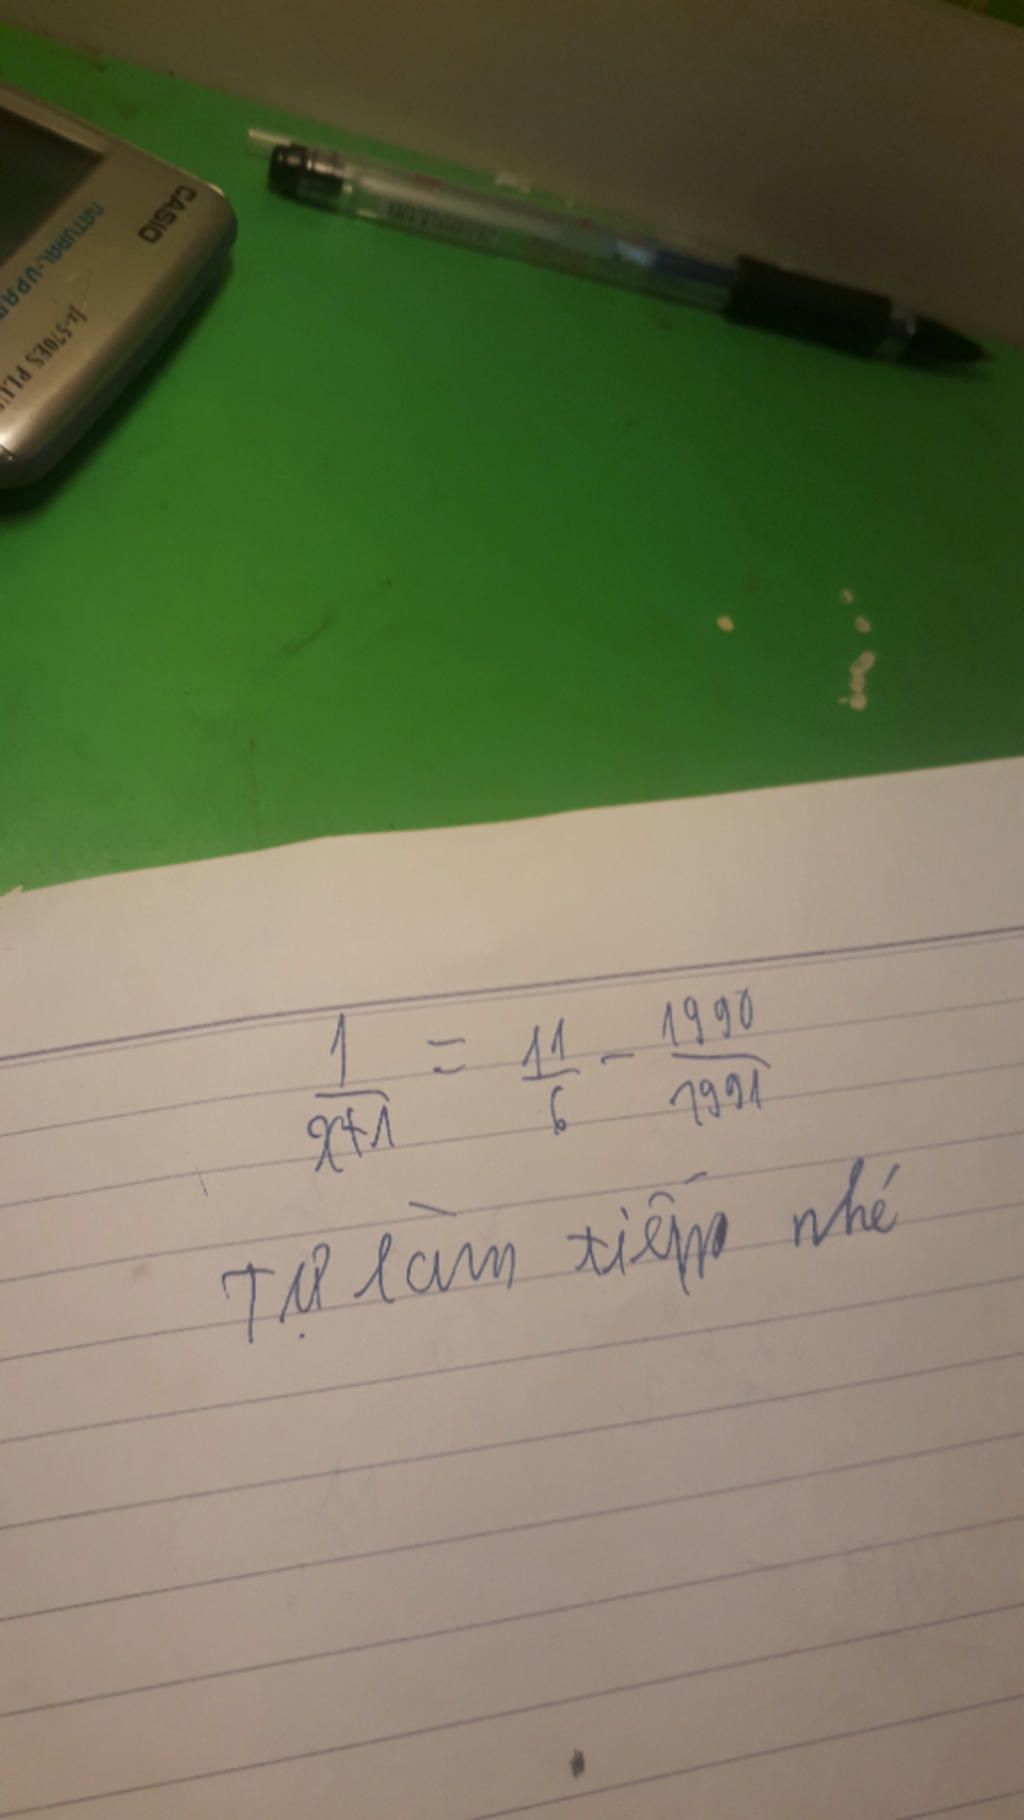 CASIO
NATURAL-V.P.A.M
fx-570ES PLUS
1/x+1 = 11/6 - 1990/1991
Tự làm tiếp nhé